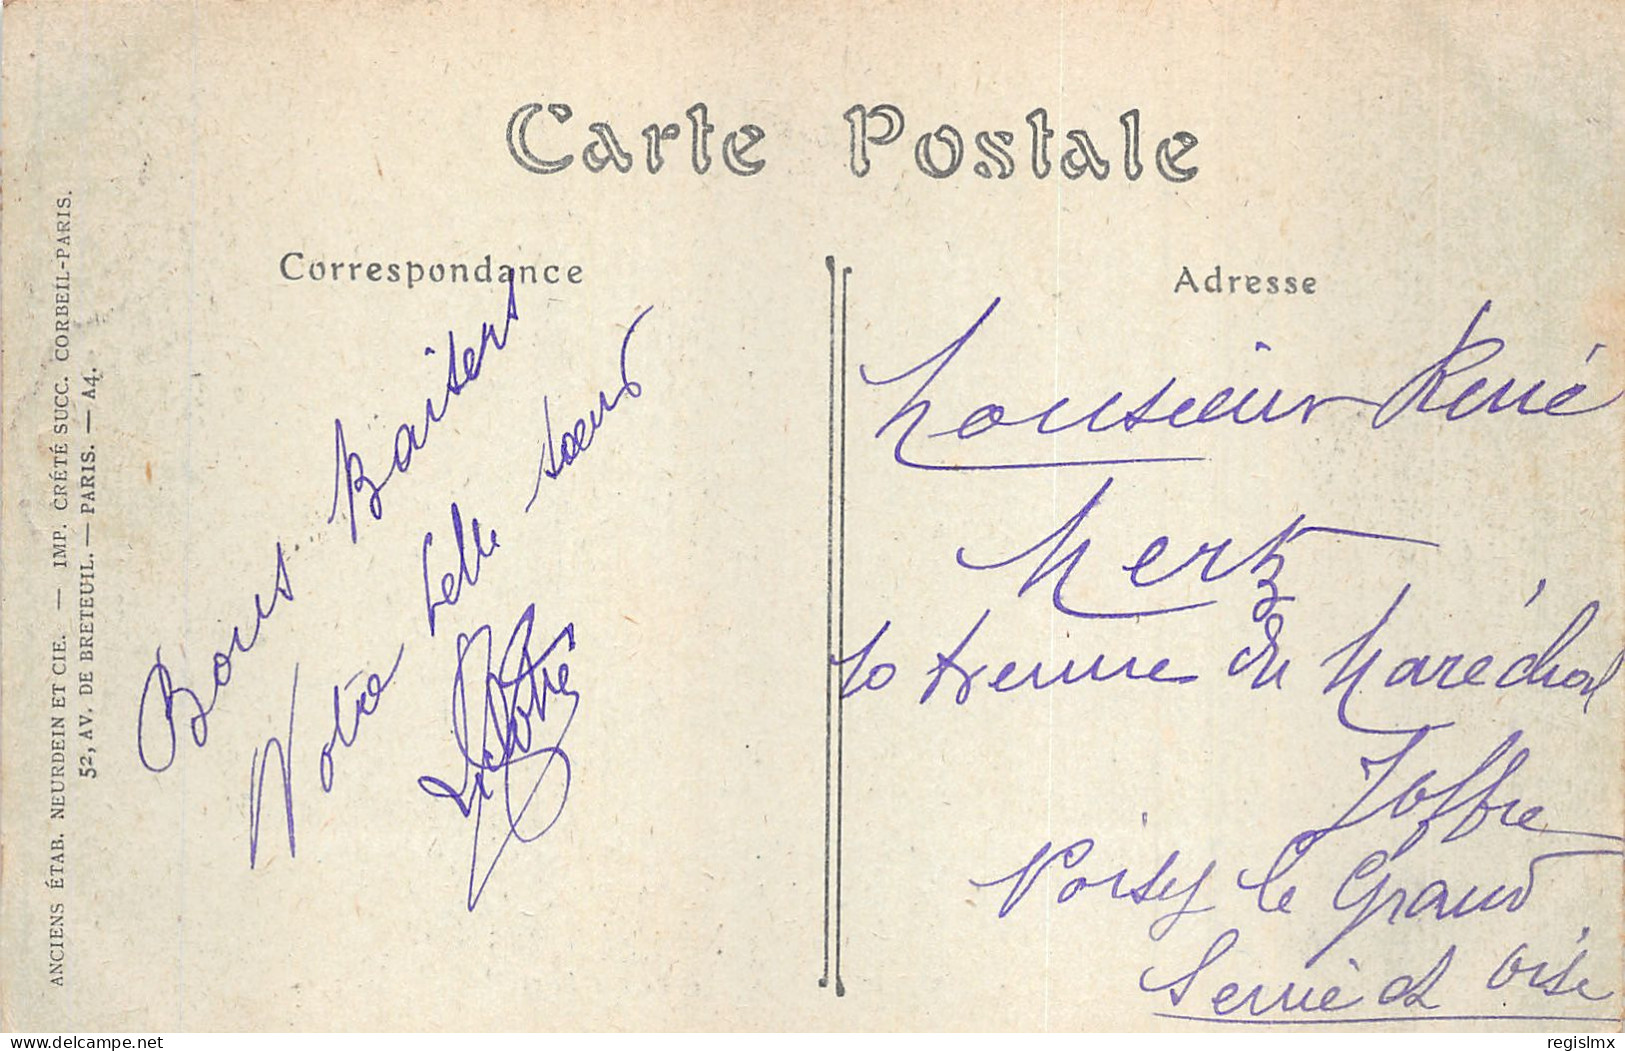 Carte Postale
Correspondance
Adresse
ANCIENS ÉTAB. NEURDEIN ET CIE. — IMP. CRÉTÉ SUCC. CORBEIL-PARIS.
52, AV. DE BRETEUIL. — PARIS. — A4.
Bons Baisers
Votre belle sœur
Monsieur René
Mertz
10 Avenue du Maréchal
Joffre
Noisy le Grand
Seine et Oise
delcampe.net
regislmx